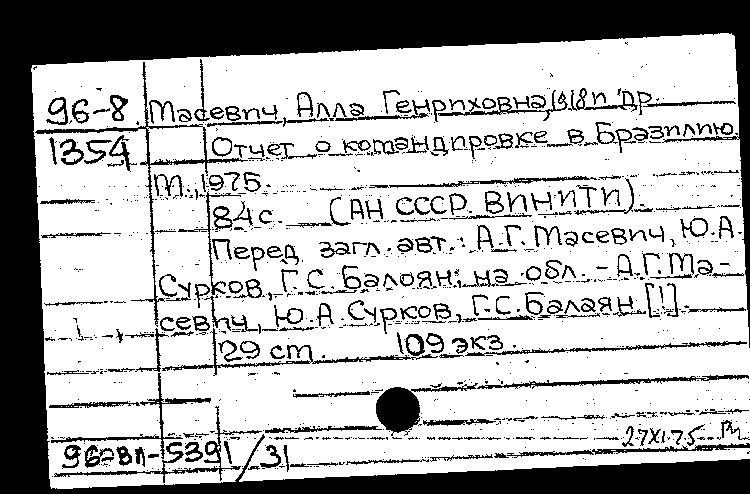 96-8 Масевич, Алла Генриховна, 1918 и др.
1354 Отчет о командировке в Бразилию.
М., 1975.
84 с. (АН СССР. ВИНИТИ).
Перед загл. авт.: А.Г. Масевич, Ю.А.
Сурков, Г.С. Балоян; на обл. - А.Г. Ма-
севич, Ю.А. Сурков, Г.С. Балаян [!].
29 cm. 109 экз.
27 XI 75
96-ВП-5391/31